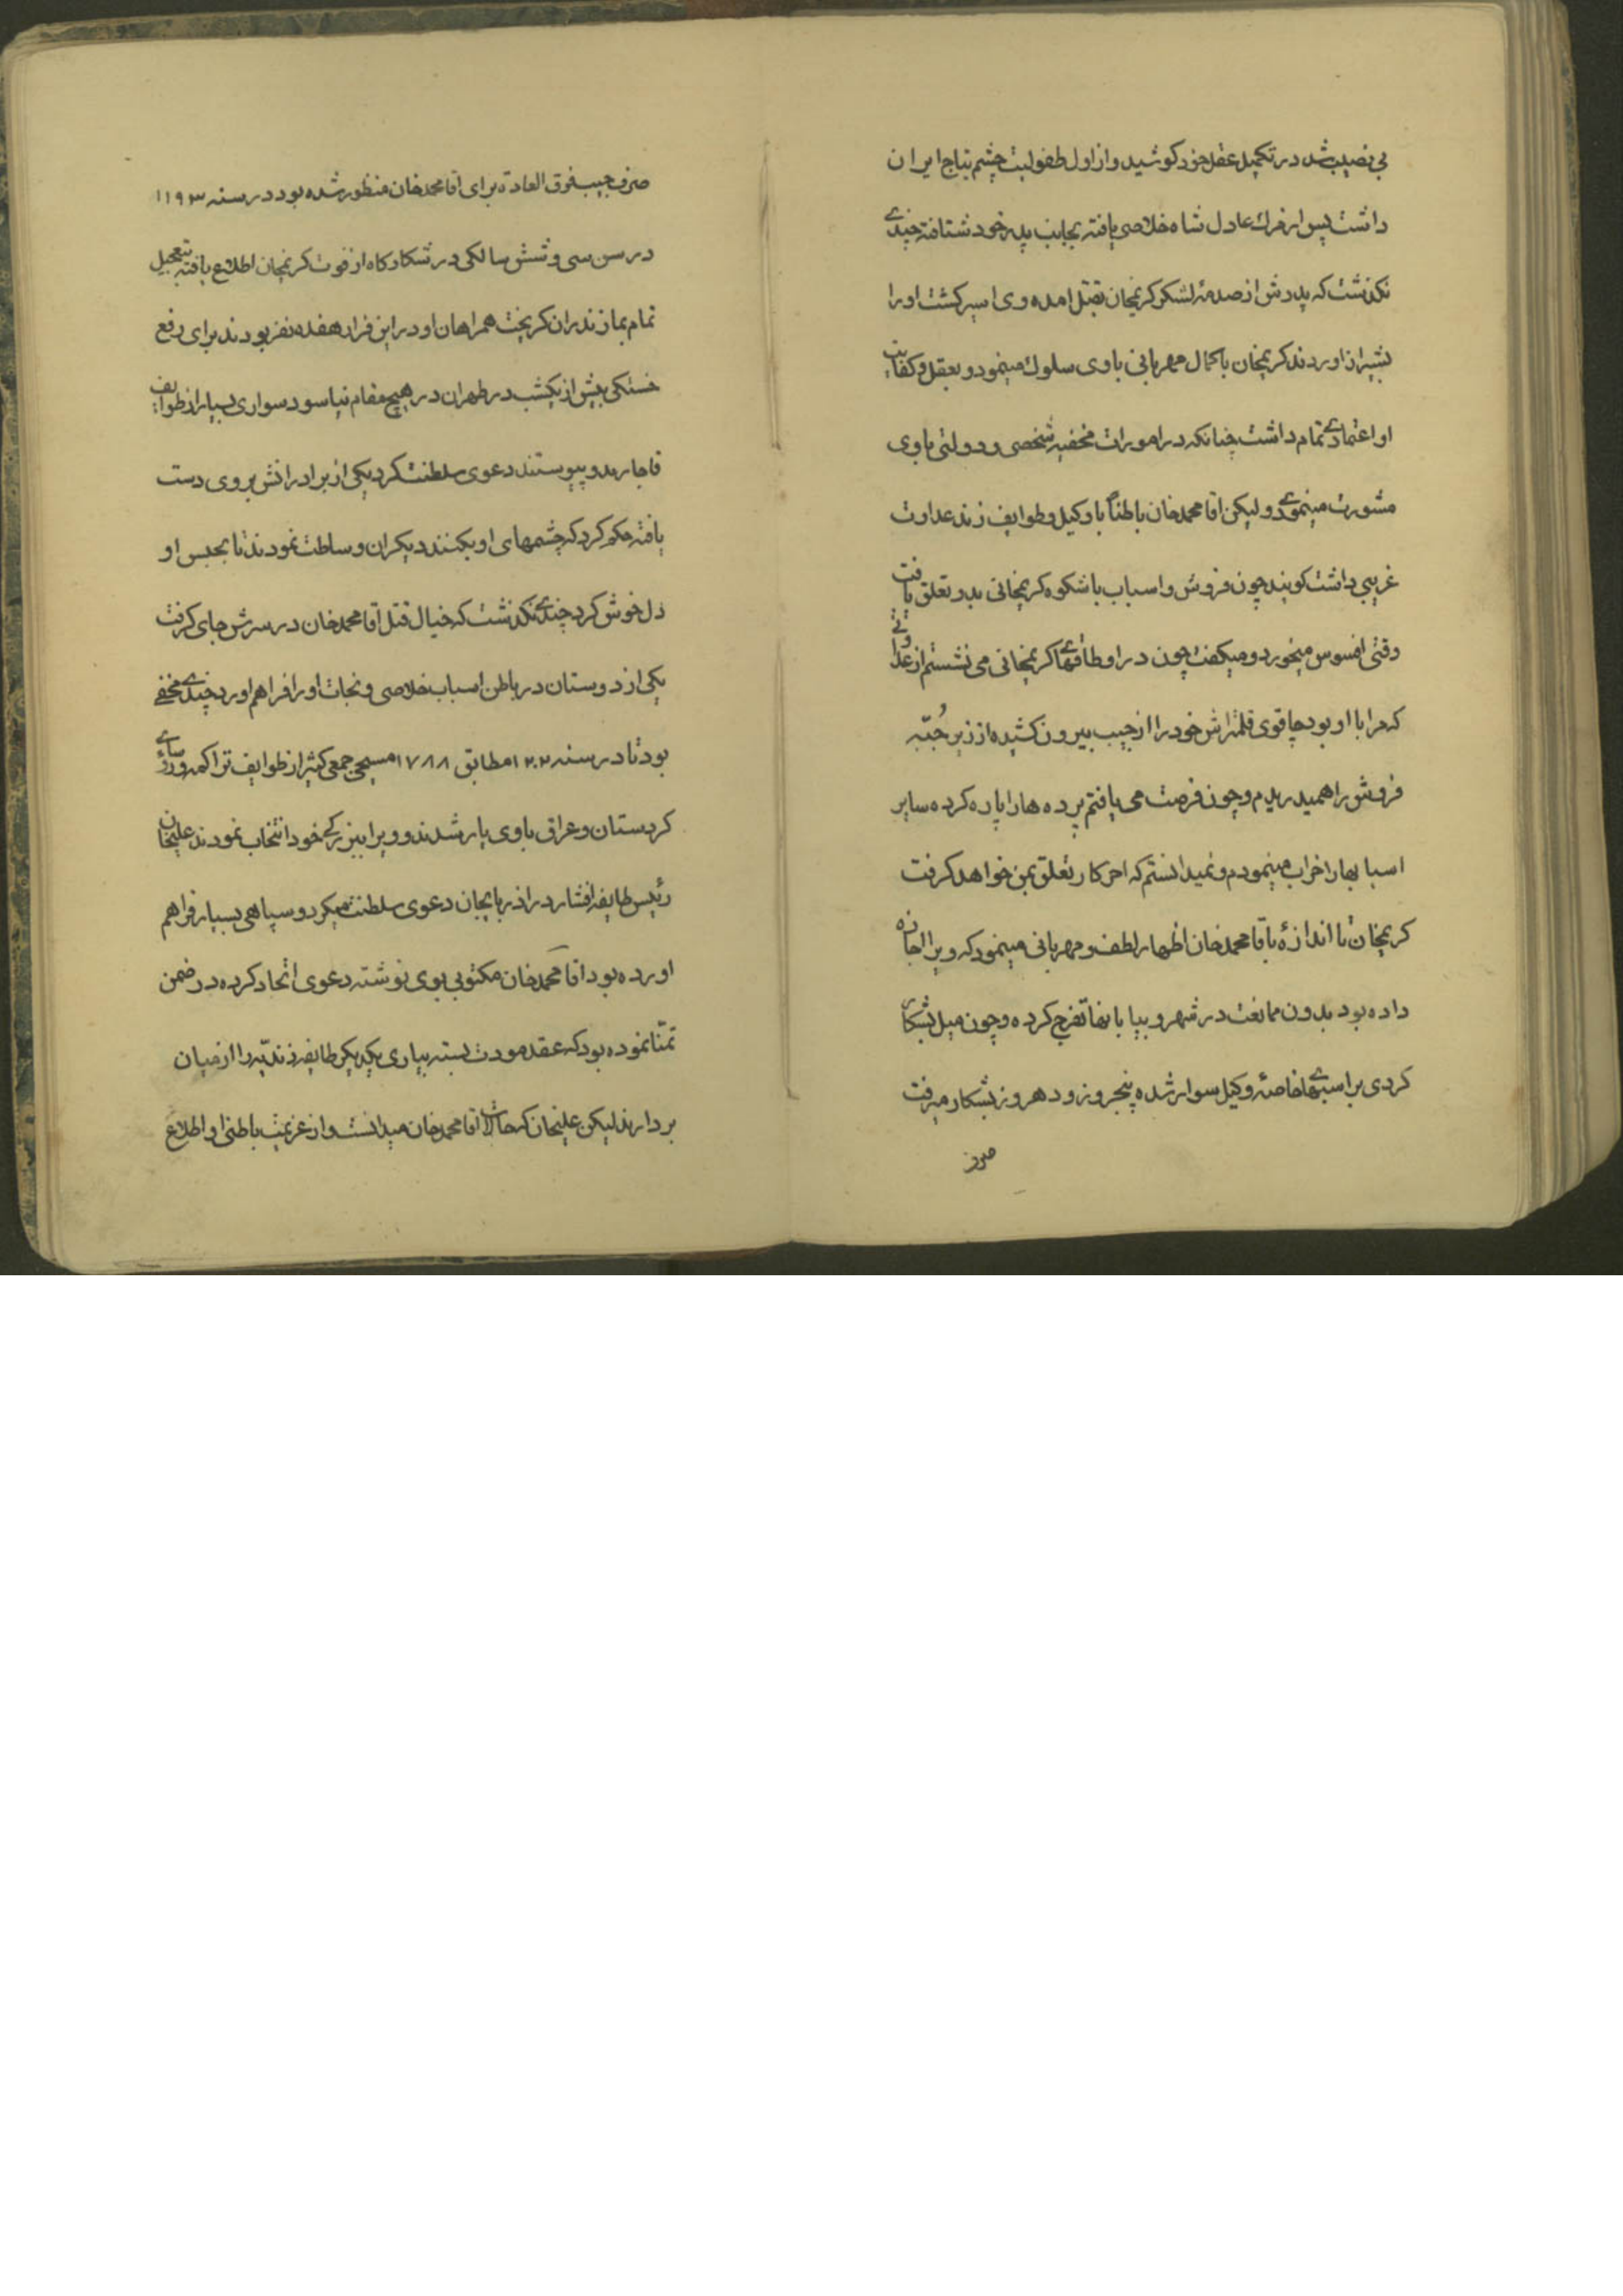 بی نصیب شد در تکمیل عقل خود کوشید و از اول طفولیت چشم بتاج ایران
داشت پس از مرک عادل شاه خلاصی یافته بجانب پدر خود شتافته چندی
نکذشت که پدرش از صدمهٔ لشکر کریمخان بقتل امده وی اسیر کشت او را
بشیراز اوردند کریمخان با کمال مهربانی با وی سلوک مینمود و بعقل و کفایت
او اعتمادی تمام داشت چنانکه در امورات مخفیه شخصی و دولتی با وی
مشورت مینمودی و لیکن اقا محمدخان باطناً با وکیل و طوایف زند عداوت
غریبی داشت کویند چون فروش و اسباب با شکوه کریمخانی بدو تعلق یافت
وقتی افسوس میخورد و میکفت چون در اوطاقهای کریمخانی می نشستم از عداوتی
که مرا با او بود چاقوی قلمتراش خود را از جیب بیرون کشیده از زیر جُبّه
فروش را همیدریدم و چون فرصت می یافتم پرده ها را پاره کرده سایر
اسبابها را خراب مینمودم و نمیدانستم که اخر کار تعلق بمن خواهد کرفت
کریمخان تا اندازهٔ باقا محمدخان اظهار لطف و مهربانی مینمود که ویرا اجازه
داده بود بدون ممانعت در شهر و بیابانها تفرج کرده و چون میل بشکار
کردی بر اسبهای خاصهٔ وکیل سوار شده پنجروز و دهروز بشکار میرفت
صرف جیب فوق العادة برای اقا محمدخان منظور شده بود در سنه ۱۱۹۳
در سن سی و شش سالکی در شکارکاه از فوت کریمخان اطلاع یافته بتعجیل
تمام بمازندران کریخت همراهان او در این فرار هفده نفر بودند برای رفع
خستکی بیش از یکشب در طهران در هیچ مقام نیاسود سواری بسیار از طوایف
قاجار بدو پیوستند دعوی سلطنت کرد یکی از برادرانش بر وی دست
یافته حکم کرد که چشمهای او بکنند دیکران وساطت نمودند تا بحبس او
دل خوش کرد چندی نکذشت که خیال قتل اقا محمدخان در سرش جای کرفت
یکی از دوستان در باطن اسباب خلاصی و نجات او را فراهم اورد چندی مخفی
بود تا در سنه ۱۲۰۲ مطابق ۱۷۸۸ مسیحی جمعی کثیر از طوایف تراکمه و رؤسای
کردستان و عراق با وی یار شدند و ویرا ببزرکی خود انتخاب نمودند علیخان
رئیس طایفه افشار در اذربایجان دعوی سلطنت میکرد و سپاهی بسیار فراهم
اورده بود اقا محمدخان مکتوبی بوی نوشته دعوی اتحاد کرده در ضمن
تمنّا نموده بود که عقد مودت بسته بیاری یکدیکر طایفه زندیّه را از میان
بردارند لیکن علیخان که حالات اقا محمدخان میدانست و از عزیمت باطنی او اطلاع